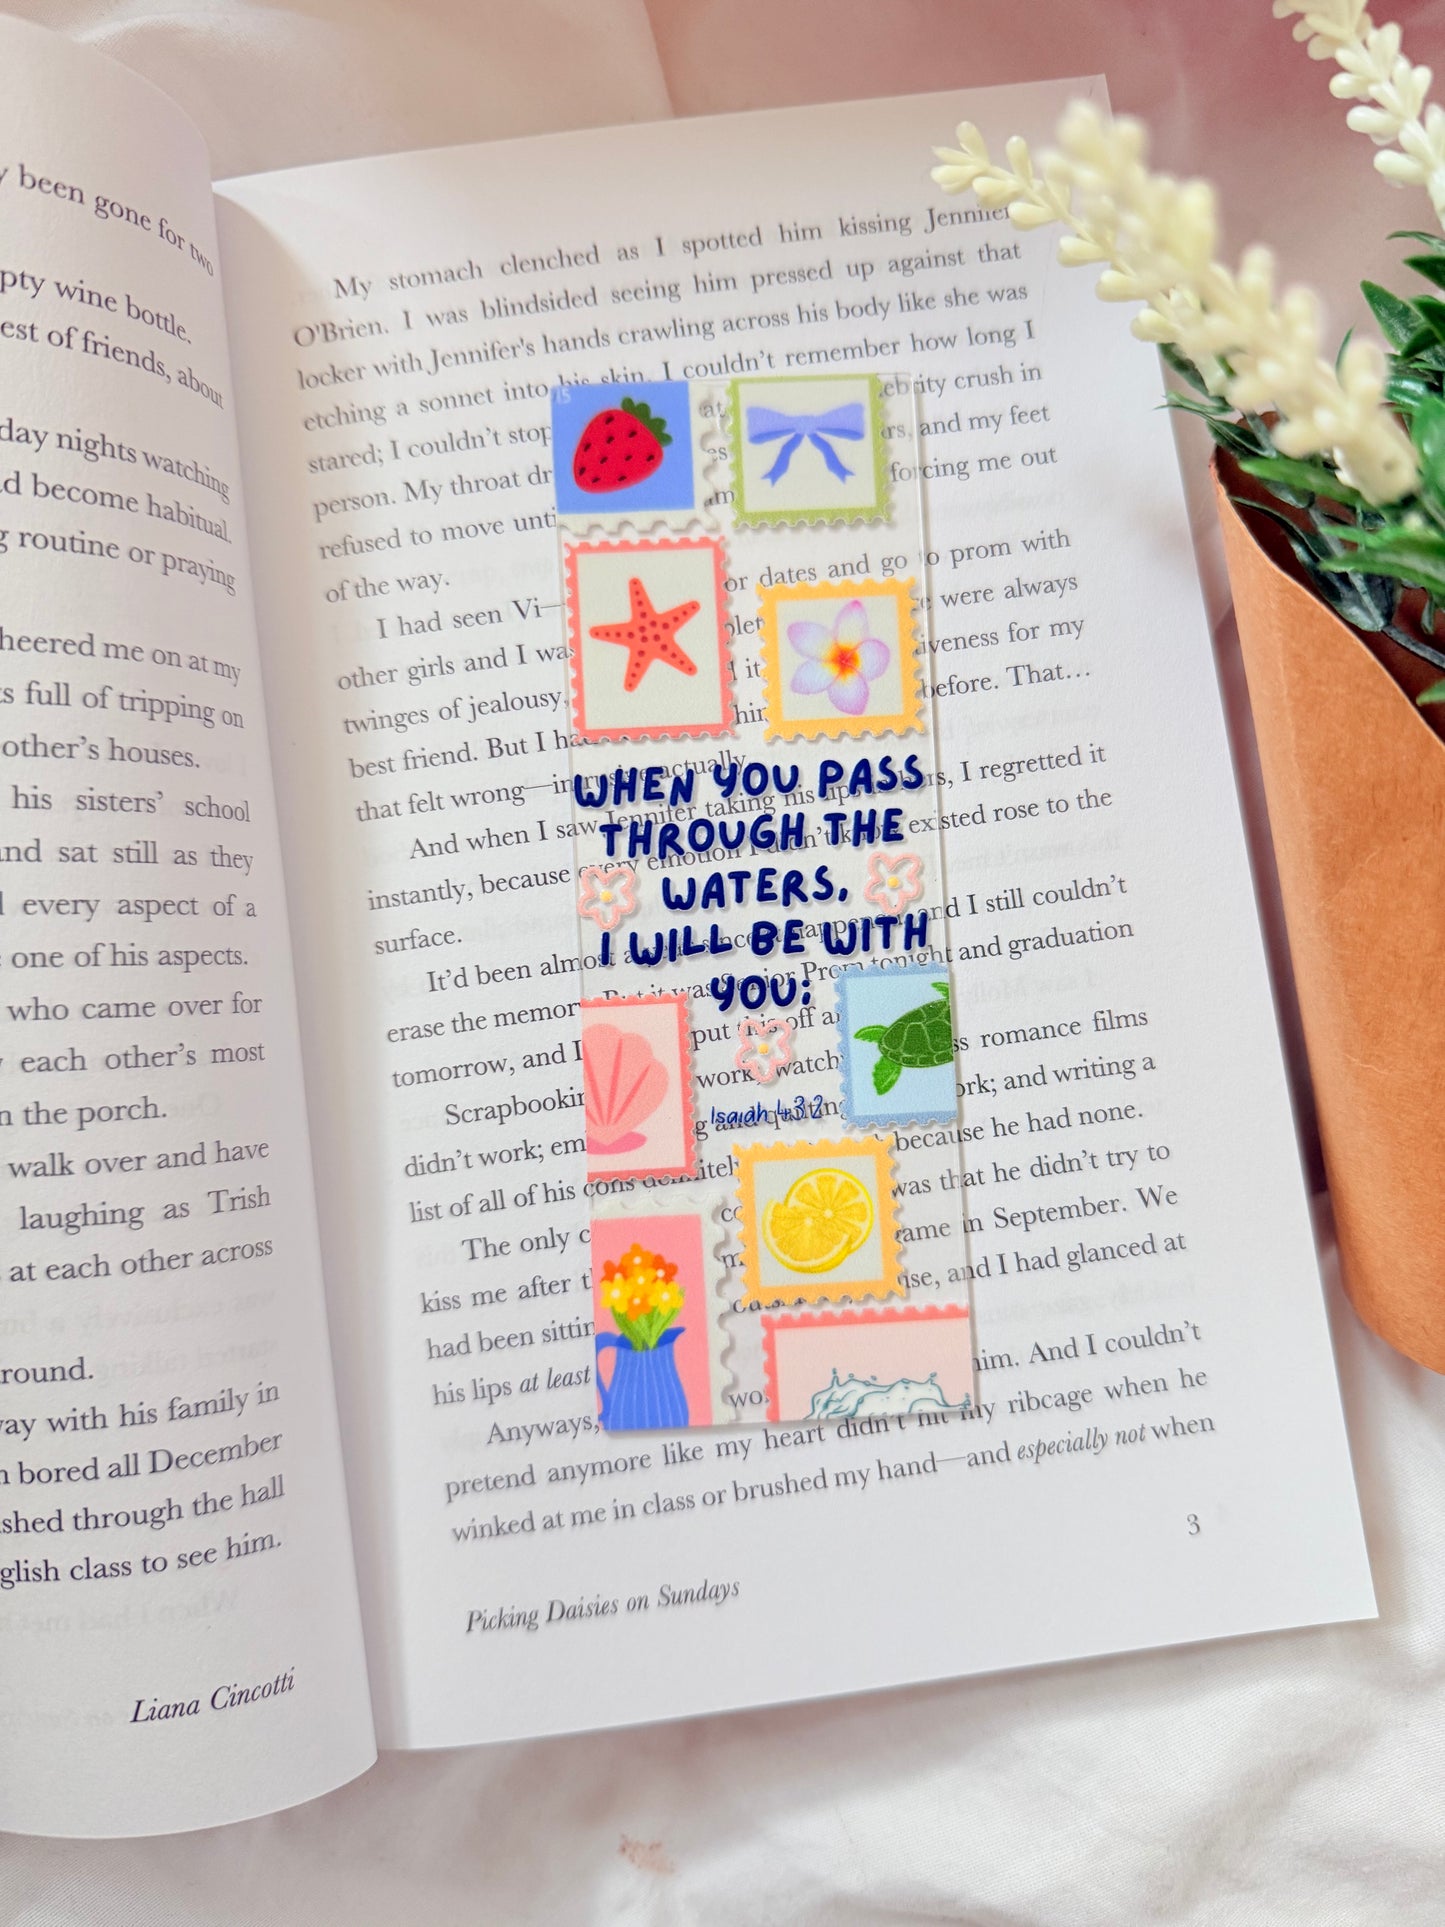 y been gone for two
pty wine bottle.
est of friends, about
day nights watching
d become habitual.
g routine or praying
heered me on at my
s full of tripping on
other's houses.
his sisters' school
nd sat still as they
every aspect of a
one of his aspects.
who came over for
y each other's most
n the porch.
walk over and have
laughing as Trish
at each other across
round.
vay with his family in
n bored all December
shed through the hall
glish class to see him.
Liana Cincotti
My stomach clenched as I spotted him kissing Jennifer
O'Brien. I was blindsided seeing him pressed up against that
locker with Jennifer's hands crawling across his body like she was
etching a sonnet into his skin. I couldn't remember how long I
stared; I couldn't stop at ebrity crush in
person. My throat dr es rs, and my feet
refused to move unti am forcing me out
of the way.
I had seen Vi— or dates and go to prom with
other girls and I wa plet e were always
twinges of jealousy, d it iveness for my
best friend. But I ha hin before. That…
that felt wrong—in actually
And when I saw Jennifer taking his lips hers, I regretted it
instantly, because every emotion I didn't know existed rose to the
surface.
It'd been almost a year since happened and I still couldn't
erase the memor But it was Senior Prom tonight and graduation
tomorrow, and I put this off a ss romance films
Scrapbookin work, watch ork; and writing a
didn't work; em g and quitting because he had none.
list of all of his cons definitely was that he didn't try to
The only c ame in September. We
kiss me after t ise, and I had glanced at
had been sittin
his lips at least wo him. And I couldn't
Anyways,
pretend anymore like my heart didn't hit my ribcage when he
winked at me in class or brushed my hand—and especially not when
3
Picking Daisies on Sundays
WHEN YOU PASS
THROUGH THE
WATERS,
I WILL BE WITH
YOU:
Isaiah 43:2